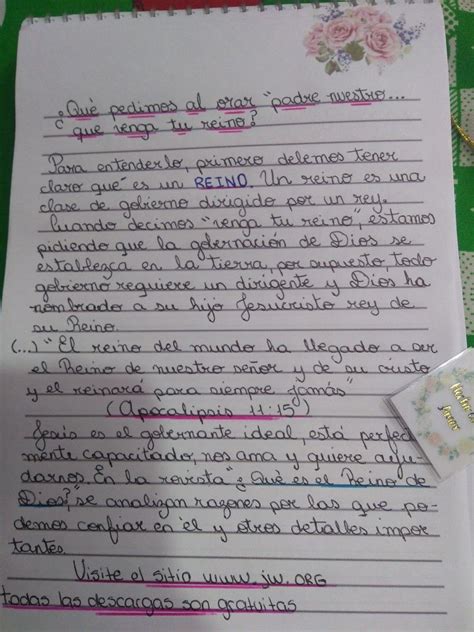 ¿Qué pedimos al orar "padre nuestro...
que venga tu reino?
Para entenderlo, primero debemos tener
claro que es un REINO. Un reino es una
clase de gobierno dirigido por un rey.
Cuando decimos "venga tu reino", estamos
pidiendo que la gobernación de Dios se
establezca en la tierra, por supuesto, todo
gobierno requiere un dirigente y Dios ha
nombrado a su hijo Jesucristo rey de
su Reino.
(...) "El reino del mundo ha llegado a ser
el Reino de nuestro señor y de su cristo
y el reinará para siempre jamás"
(Apocalipsis 11:15)
Jesús es el gobernante ideal, está perfec
mente capacitado, nos ama y quiere ayu-
darnos. En la revista "¿Qué es el Reino de
Dios?", se analizan razones por las que po-
demos confiar en él y otros detalles impor
tantes.
Visite el sitio www.jw.ORG
todas las descargas son gratuitas